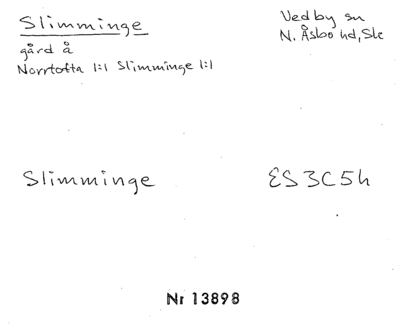 Slimminge
gård å
Norrtofta 1:1 Slimminge 1:1
Vedby sn
N. Åsbo hd, Sk
Slimminge
ES 3C5h
Nr 13898